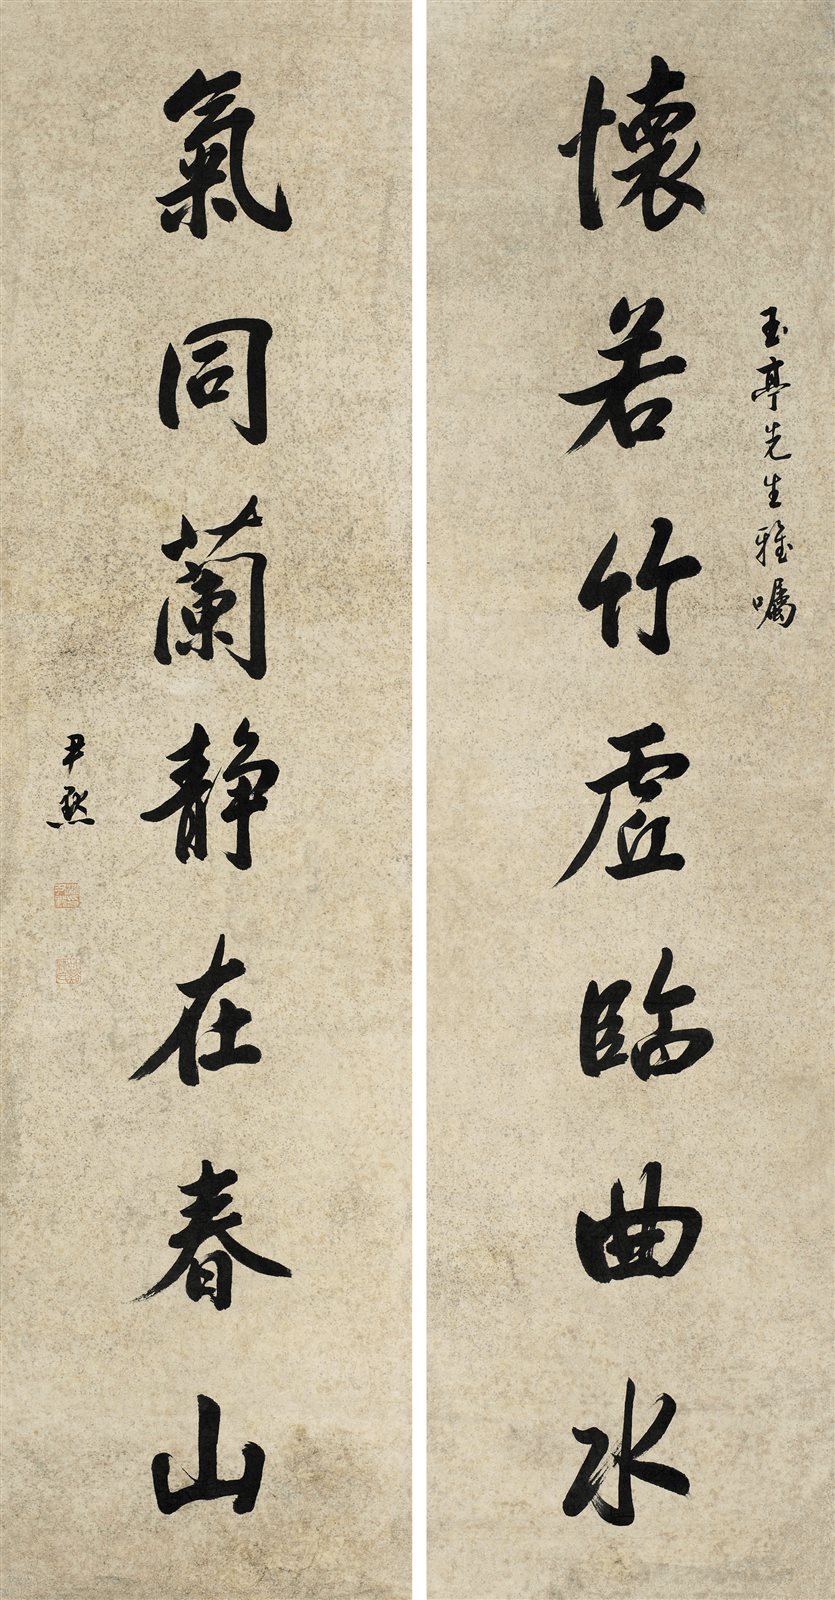 玉亭先生雅嘱
懷若竹虚臨曲水
氣同蘭静在春山
尹默